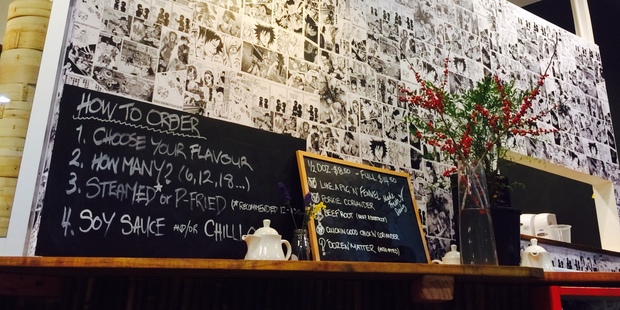 HOW TO ORDER
1. CHOOSE YOUR FLAVOUR
2. HOW MANY? (6, 12, 18...)
3. STEAMED or P-FRIED (*RECOMMENDED
4. SOY SAUCE AND/OR CHILLI
1/2 DOZ - FULL
LIKE A PIG 'N' FENNEL
CORIANDER
BEEFROOT
CHICKEN GOOD CHICK'N' CORIANDER
DOZEN' MATTER